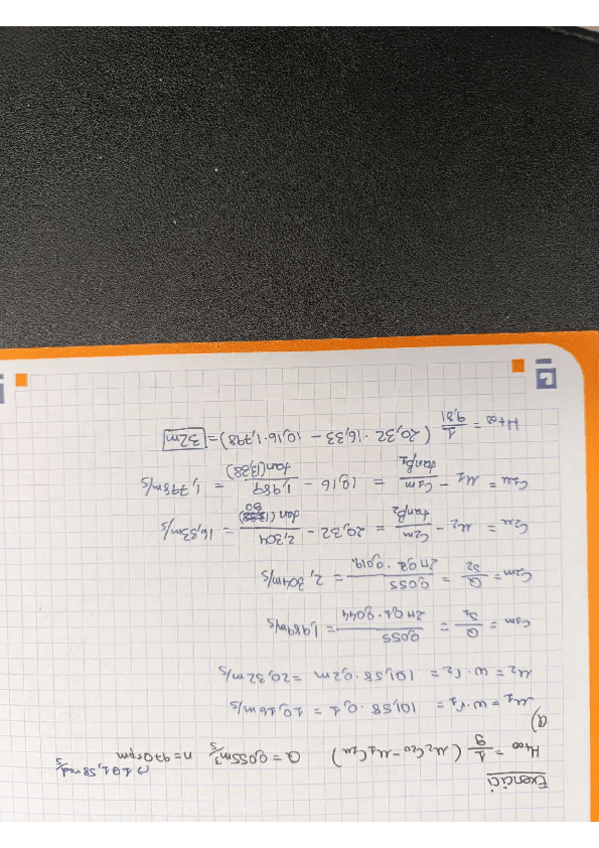 Exercici
H_t∞ = 1/g (u2 C2u - u1 C1u)   Q = 0,055 m³/s   n = 970 rpm
→ 101,58 rad/s
a)
u1 = w · r1 = 101,58 · 0,1 = 10,16 m/s
u2 = w · r2 = 101,58 · 0,2m = 20,32 m/s
C1m = Q/S1 = 0,055/(2π 0,1 · 0,044) = 1,989 m/s
C2m = Q/S2 = 0,055/(2π 0,2 · 0,019) = 2,304 m/s
C2u = u2 - C2m/tanβ2 = 20,32 - 2,304/tan(30) = 16,33 m/s
C1u = u1 - C1m/tanβ1 = 10,16 - 1,989/tan(13,38) = 1,798 m/s
Ht∞ = 1/9,81 (20,32 · 16,33 - 10,16 · 1,798) = 32m